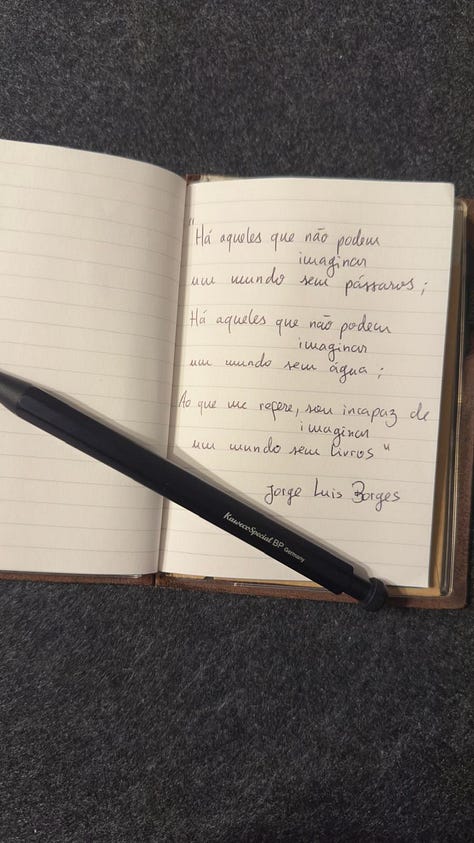 "Há aqueles que não podem
imaginar
um mundo sem pássaros;
Há aqueles que não podem
imaginar
um mundo sem água;
Ao que me refere, sou incapaz de
imaginar
um mundo sem livros"
Jorge Luis Borges
Kaweco Special BP Germany